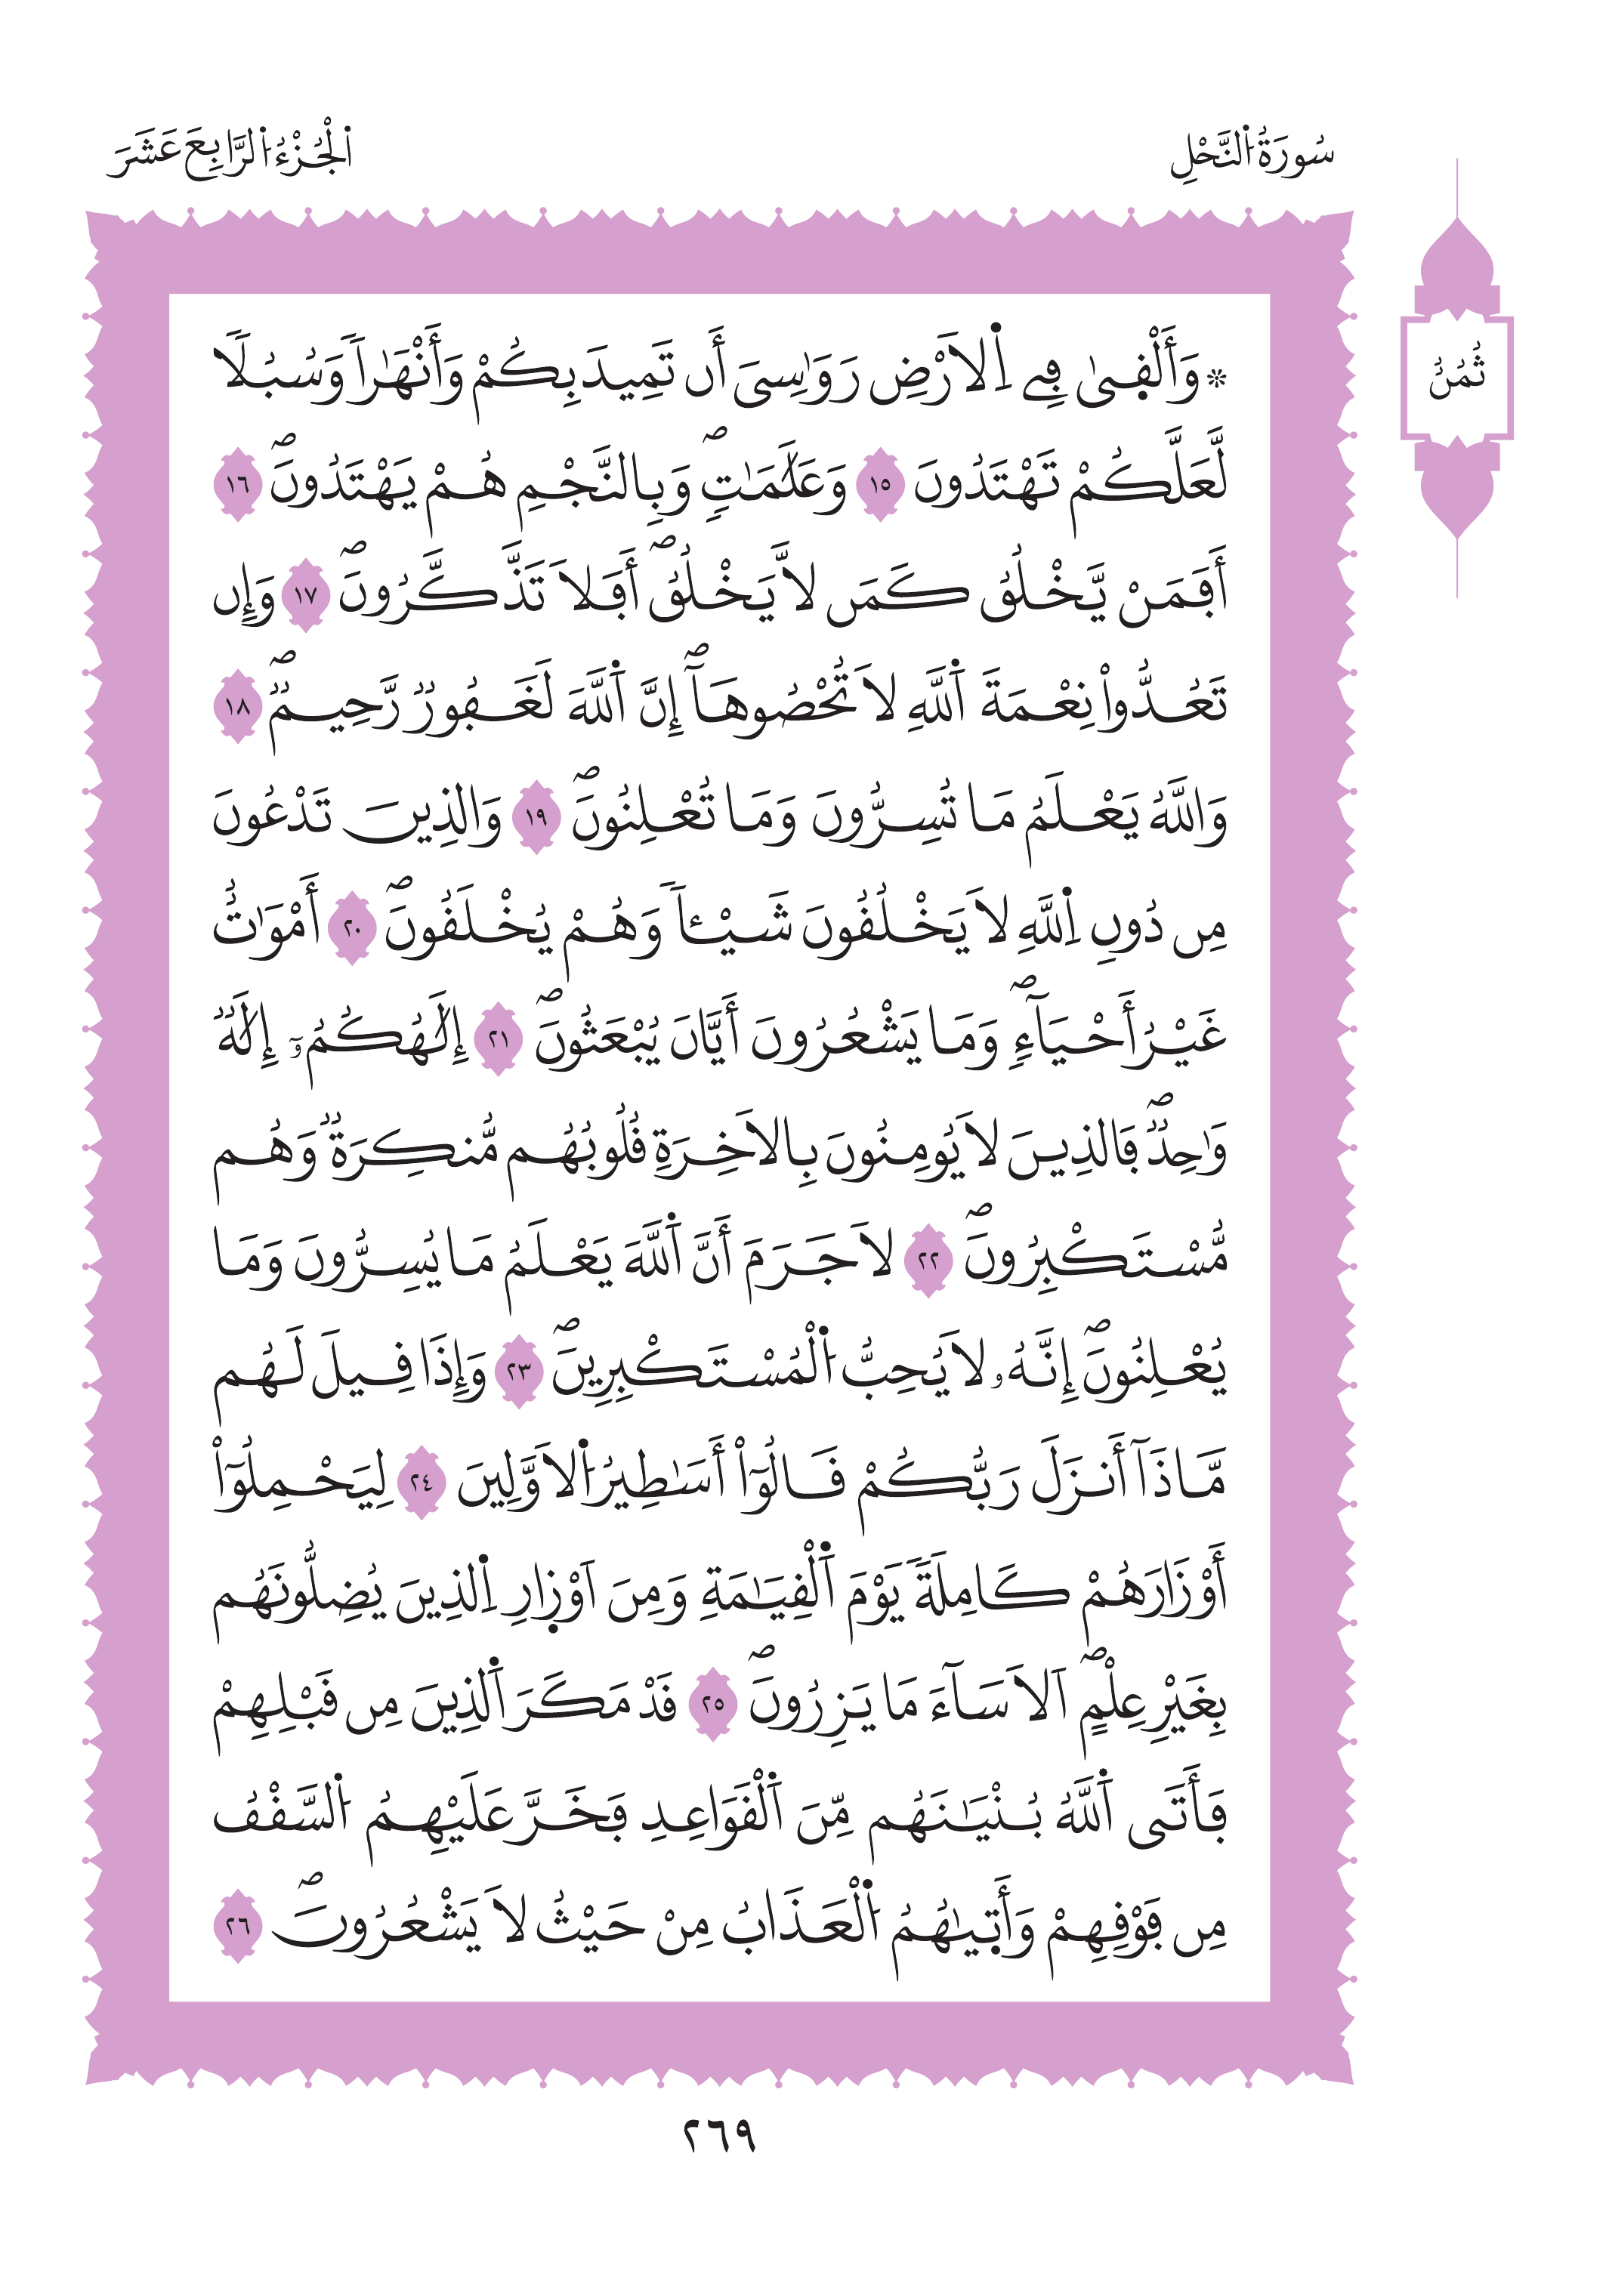 سُورَةُ اُ۬لنَّحْلِ
اَ۬لْجُزْءُ اُ۬لرَّابِعَ عَشَرَ
ثُمُنٌ
* وَأَلْق۪ىٰ فِے اِ۬لَارْضِ رَوَٰسِىَ أَن تَمِيدَ بِكُمْ وَأَنْهَٰراٗ وَسُبُلاٗ
لَّعَلَّكُمْ تَهْتَدُونَ ١٥ وَعَلَٰمَٰتٖۖ وَبِالنَّجْمِ هُمْ يَهْتَدُونَۖ ١٦
أَفَمَنْ يَّخْلُقُ كَمَن لَّا يَخْلُقُۖ أَفَلَا تَذَّكَّرُونَۖ ١٧ وَإِن
تَعُدُّواْ نِعْمَةَ اَ۬للَّهِ لَا تُحْصُوهَآۖ إِنَّ اَ۬للَّهَ لَغَفُورٞ رَّحِيمٞۖ ١٨
وَاللَّهُ يَعْلَمُ مَا تُسِرُّونَ وَمَا تُعْلِنُونَۖ ١٩ وَالذِينَ تَدْعُونَ
مِن دُونِ اِ۬للَّهِ لَا يَخْلُقُونَ شَيْـٔاٗ وَهُمْ يُخْلَقُونَۖ ٢٠ أَمْوَٰتٌ
غَيْرُ أَحْيَآءٖۖ وَمَا يَشْعُرُونَ أَيَّانَ يُبْعَثُونَۖ ٢١ إِلَٰهُكُمُۥٓ إِلَٰهٞ
وَٰحِدٞۖ فَالذِينَ لَا يُومِنُونَ بِالَاخِرَةِ قُلُوبُهُم مُّنكِرَةٞ وَهُم
مُّسْتَكْبِرُونَۖ ٢٢ لَا جَرَمَ أَنَّ اَ۬للَّهَ يَعْلَمُ مَا يُسِرُّونَ وَمَا
يُعْلِنُونَۖ إِنَّهُۥ لَا يُحِبُّ اُ۬لْمُسْتَكْبِرِينَۖ ٢٣ وَإِذَا قِيلَ لَهُم
مَّاذَآ أَنزَلَ رَبُّكُمْ قَالُوٓاْ أَسَٰطِيرُ اُ۬لَاوَّلِينَ ٢٤ لِيَحْمِلُوٓاْ
أَوْزَارَهُمْ كَامِلَةٗ يَوْمَ اَ۬لْقِيَٰمَةِ وَمِنَ اَوْز۪ارِ اِ۬لذِينَ يُضِلُّونَهُم
بِغَيْرِ عِلْمٍۖ اَلَا سَآءَ مَا يَزِرُونَۖ ٢٥ قَدْ مَكَرَ اَ۬لذِينَ مِن قَبْلِهِمْ
فَأَتَى اَ۬للَّهُ بُنْيَٰنَهُم مِّنَ اَ۬لْقَوَاعِدِ فَخَرَّ عَلَيْهِمُ اُ۬لسَّقْفُ
مِن فَوْقِهِمْ وَأَت۪يٰهُمُ اُ۬لْعَذَابُ مِنْ حَيْثُ لَا يَشْعُرُونَۖ ٢٦
٢٦٩